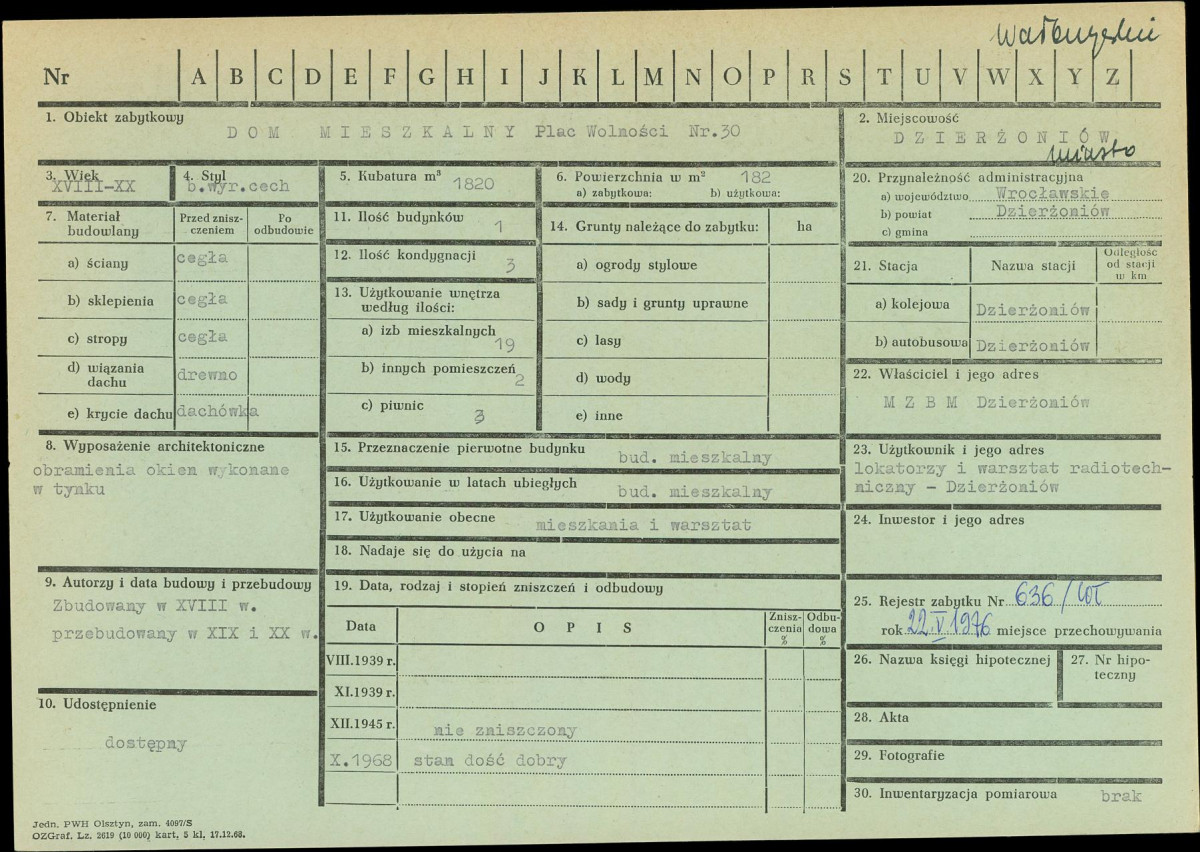 Wałbrzyskie
Nr A B C D E F G H I J K L M N O P R S T U V W X Y Z
1. Obiekt zabytkowy
DOM MIESZKALNY Plac Wolności Nr.30
2. Miejscowość
DZIERŻONIÓW
miasto
3. Wiek
XVIII-XX
4. Styl
b.wyr.cech
5. Kubatura m³ 1820
6. Powierzchnia w m² 182
a) zabytkowa: b) użytkowa:
20. Przynależność administracyjna
a) województwo Wrocławskie
b) powiat Dzierżoniów
c) gmina
7. Materiał budowlany
Przed znisz-
czeniem
Po
odbudowie
a) ściany cegła
b) sklepienia cegła
c) stropy cegła
d) wiązania
dachu drewno
e) krycie dachu dachówka
11. Ilość budynków 1
12. Ilość kondygnacji 3
13. Użytkowanie wnętrza
według ilości:
a) izb mieszkalnych 19
b) innych pomieszczeń 2
c) piwnic 3
14. Grunty należące do zabytku: ha
a) ogrody stylowe
b) sady i grunty uprawne
c) lasy
d) wody
e) inne
21. Stacja Nazwa stacji
Odległość
od stacji
w km
a) kolejowa Dzierżoniów
b) autobusowa Dzierżoniów
22. Właściciel i jego adres
MZBM Dzierżoniów
8. Wyposażenie architektoniczne
obramienia okien wykonane
w tynku
15. Przeznaczenie pierwotne budynku bud. mieszkalny
16. Użytkowanie w latach ubiegłych bud. mieszkalny
17. Użytkowanie obecne mieszkania i warsztat
18. Nadaje się do użycia na
23. Użytkownik i jego adres
lokatorzy i warsztat radiotech-
niczny - Dzierżoniów
24. Inwestor i jego adres
9. Autorzy i data budowy i przebudowy
Zbudowany w XVIII w.
przebudowany w XIX i XX w.
19. Data, rodzaj i stopień zniszczeń i odbudowy
Data OPIS
Znisz-
czenia
%
Odbu-
dowa
%
VIII.1939 r.
XI.1939 r.
XII.1945 r. nie zniszczony
X.1968 stan dość dobry
25. Rejestr zabytku Nr 636/Wł
rok 22 V 1976 miejsce przechowywania
26. Nazwa księgi hipotecznej
27. Nr hipo-
teczny
10. Udostępnienie
dostępny
28. Akta
29. Fotografie
30. Inwentaryzacja pomiarowa brak
Jedn. PWH Olsztyn, zam. 4097/S
OZGraf. Lz. 2619 (10 000) kart, 5 kl, 17.12.68.